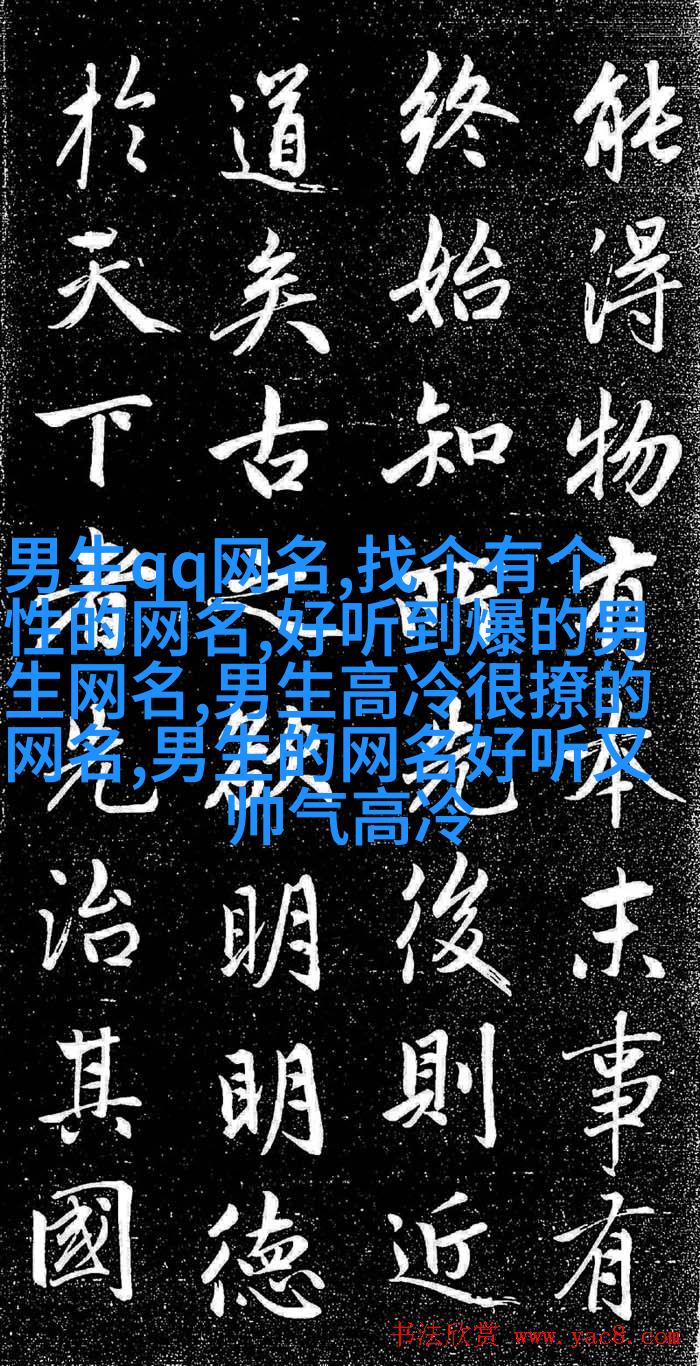 能得物有本末事有
終始知所先後則近
道矣古之欲明明德
於天下者先治其國
男生qq网名,找个有个
性的网名,好听到爆的男
生网名,男生高冷很撩的
网名,男生的网名好听又
帅气高冷
书法欣赏 www.yac8.com